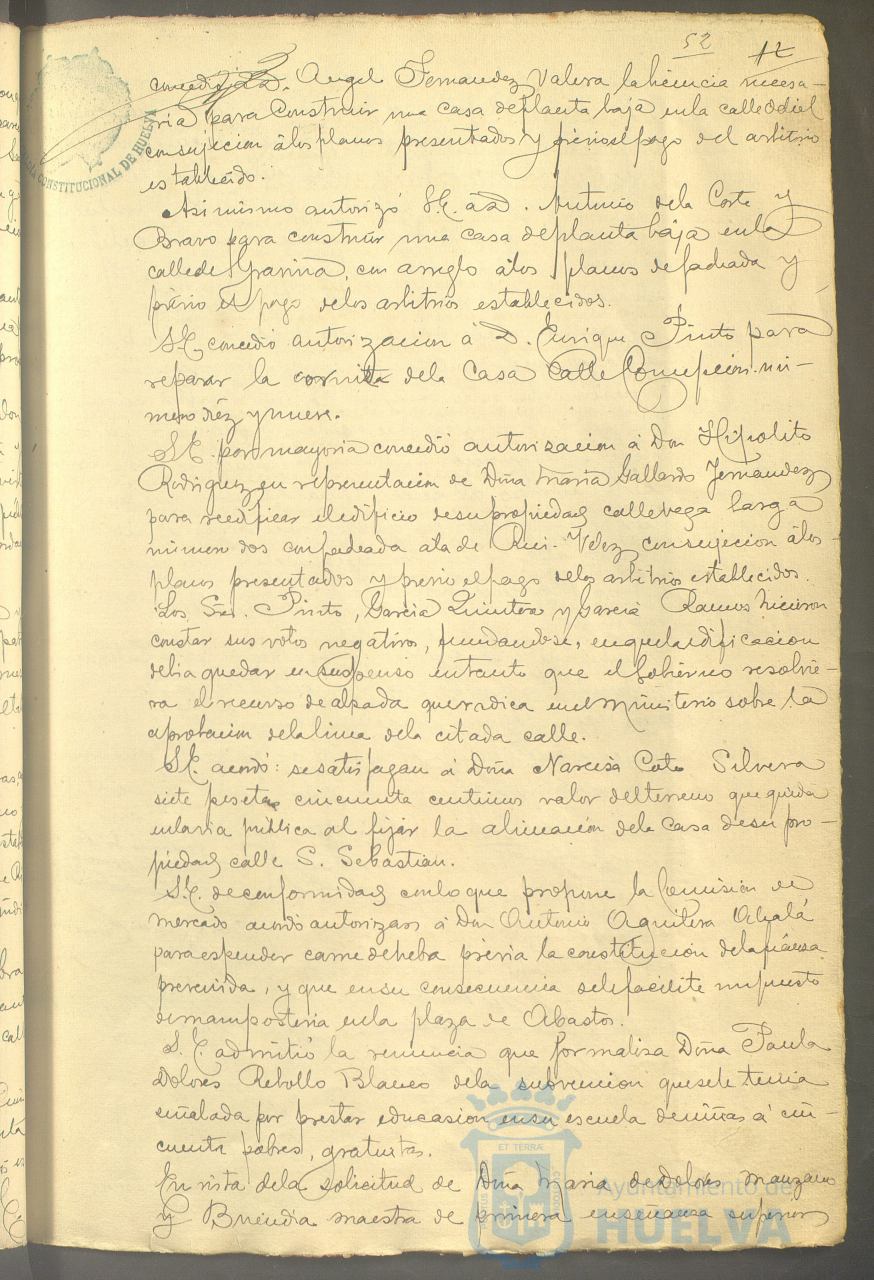 52 12
concedió á D. Angel Fernandez Valera la licencia necesa-
ria para construir una casa de planta baja en la calle Odiel
con sujecion á los planos presentados y prévio el pago del arbitrio
establecido.
Asimismo autorizó S.E. á D. Antonio de la Corte y
Bravo para construir una casa de planta baja en la
calle de Gravina, con arreglo á los planos de fachada y
prévio el pago de los arbitrios establecidos.
S.E. concedió autorizacion á D. Enrique Pinto para
reparar la cornisa de la Casa Calle Concepcion nú-
mero diéz y nueve.
S.E. por mayoria concedió autorizacion á Don Hipolito
Rodriguez en representacion de Doña Maria Gallardo Fernandez
para reedificar el edificio de su propiedad calle vega larga
número dos con fachada á la de Rui-Velez con sujecion á los
planos presentados y previo el pago de los arbitrios establecidos.
Los Sres. Pinto, Garcia Quintero y Garcia Ramos hicieron
constar sus votos negativos, fundandose, en que la edificacion
debia quedar en suspenso en tanto que el Gobierno resolvie-
ra el recurso de alzada que radica en el Ministerio sobre la
aprobacion de la linea de la citada calle.
S.E. acordó: se satisfagan á Doña Narcisa Coto Silvera
siete pesetas cincuenta centimos valor del terreno que queda
en la via pública al fijar la alineación de la Casa de su pro-
piedad calle S. Sebastian.
S.E. de conformidad con lo que propone la Comision de
mercado acordó autorizar á Don Antonio Aguilera Alcalá
para espender carne de heba prévia la constitución de la fianza
prevenida, y que en su consecuencia se le facilite un puesto
de mamposteria en la plaza de Abastos.
S.E. admitió la renuncia que formaliza Doña Paula
Dolores Rebollo Blanco de la subvencion que se le tenia
señalada por prestar educasion en su escuela de niñas á cin-
cuenta pobres, gratuitas.
En vista de la solicitud de Doña Maria de los Dolores Manzano
y Buendia maestra de primera enseñanza superior
CONSTITUCIONAL DE HUELVA
ET TERRÆ
Ayuntamiento de
HUELVA